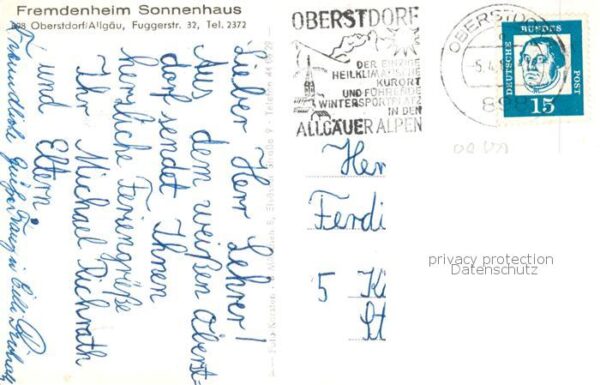 Fremdenheim Sonnenhaus
898 Oberstdorf/Allgäu, Fuggerstr. 32, Tel. 2372
Lieber Herr Lehrer!
Aus dem weißen Oberst=
dorf sendet Ihnen
herzliche Feriengrüße
Ihr Michael Richrath
und Eltern.
Freundliche Grüße Franz u.
OBERSTDORF
DER EINZIGE
HEILKLIMATISCHE
KURORT
UND FÜHRENDE
WINTERSPORTPLATZ
IN DEN
ALLGÄUER ALPEN
OBERSTDORF
-5.4.
898
DEUTSCHE BUNDES POST
15
Her
Ferdi
5 Kö
Lt
privacy protection
Datenschutz